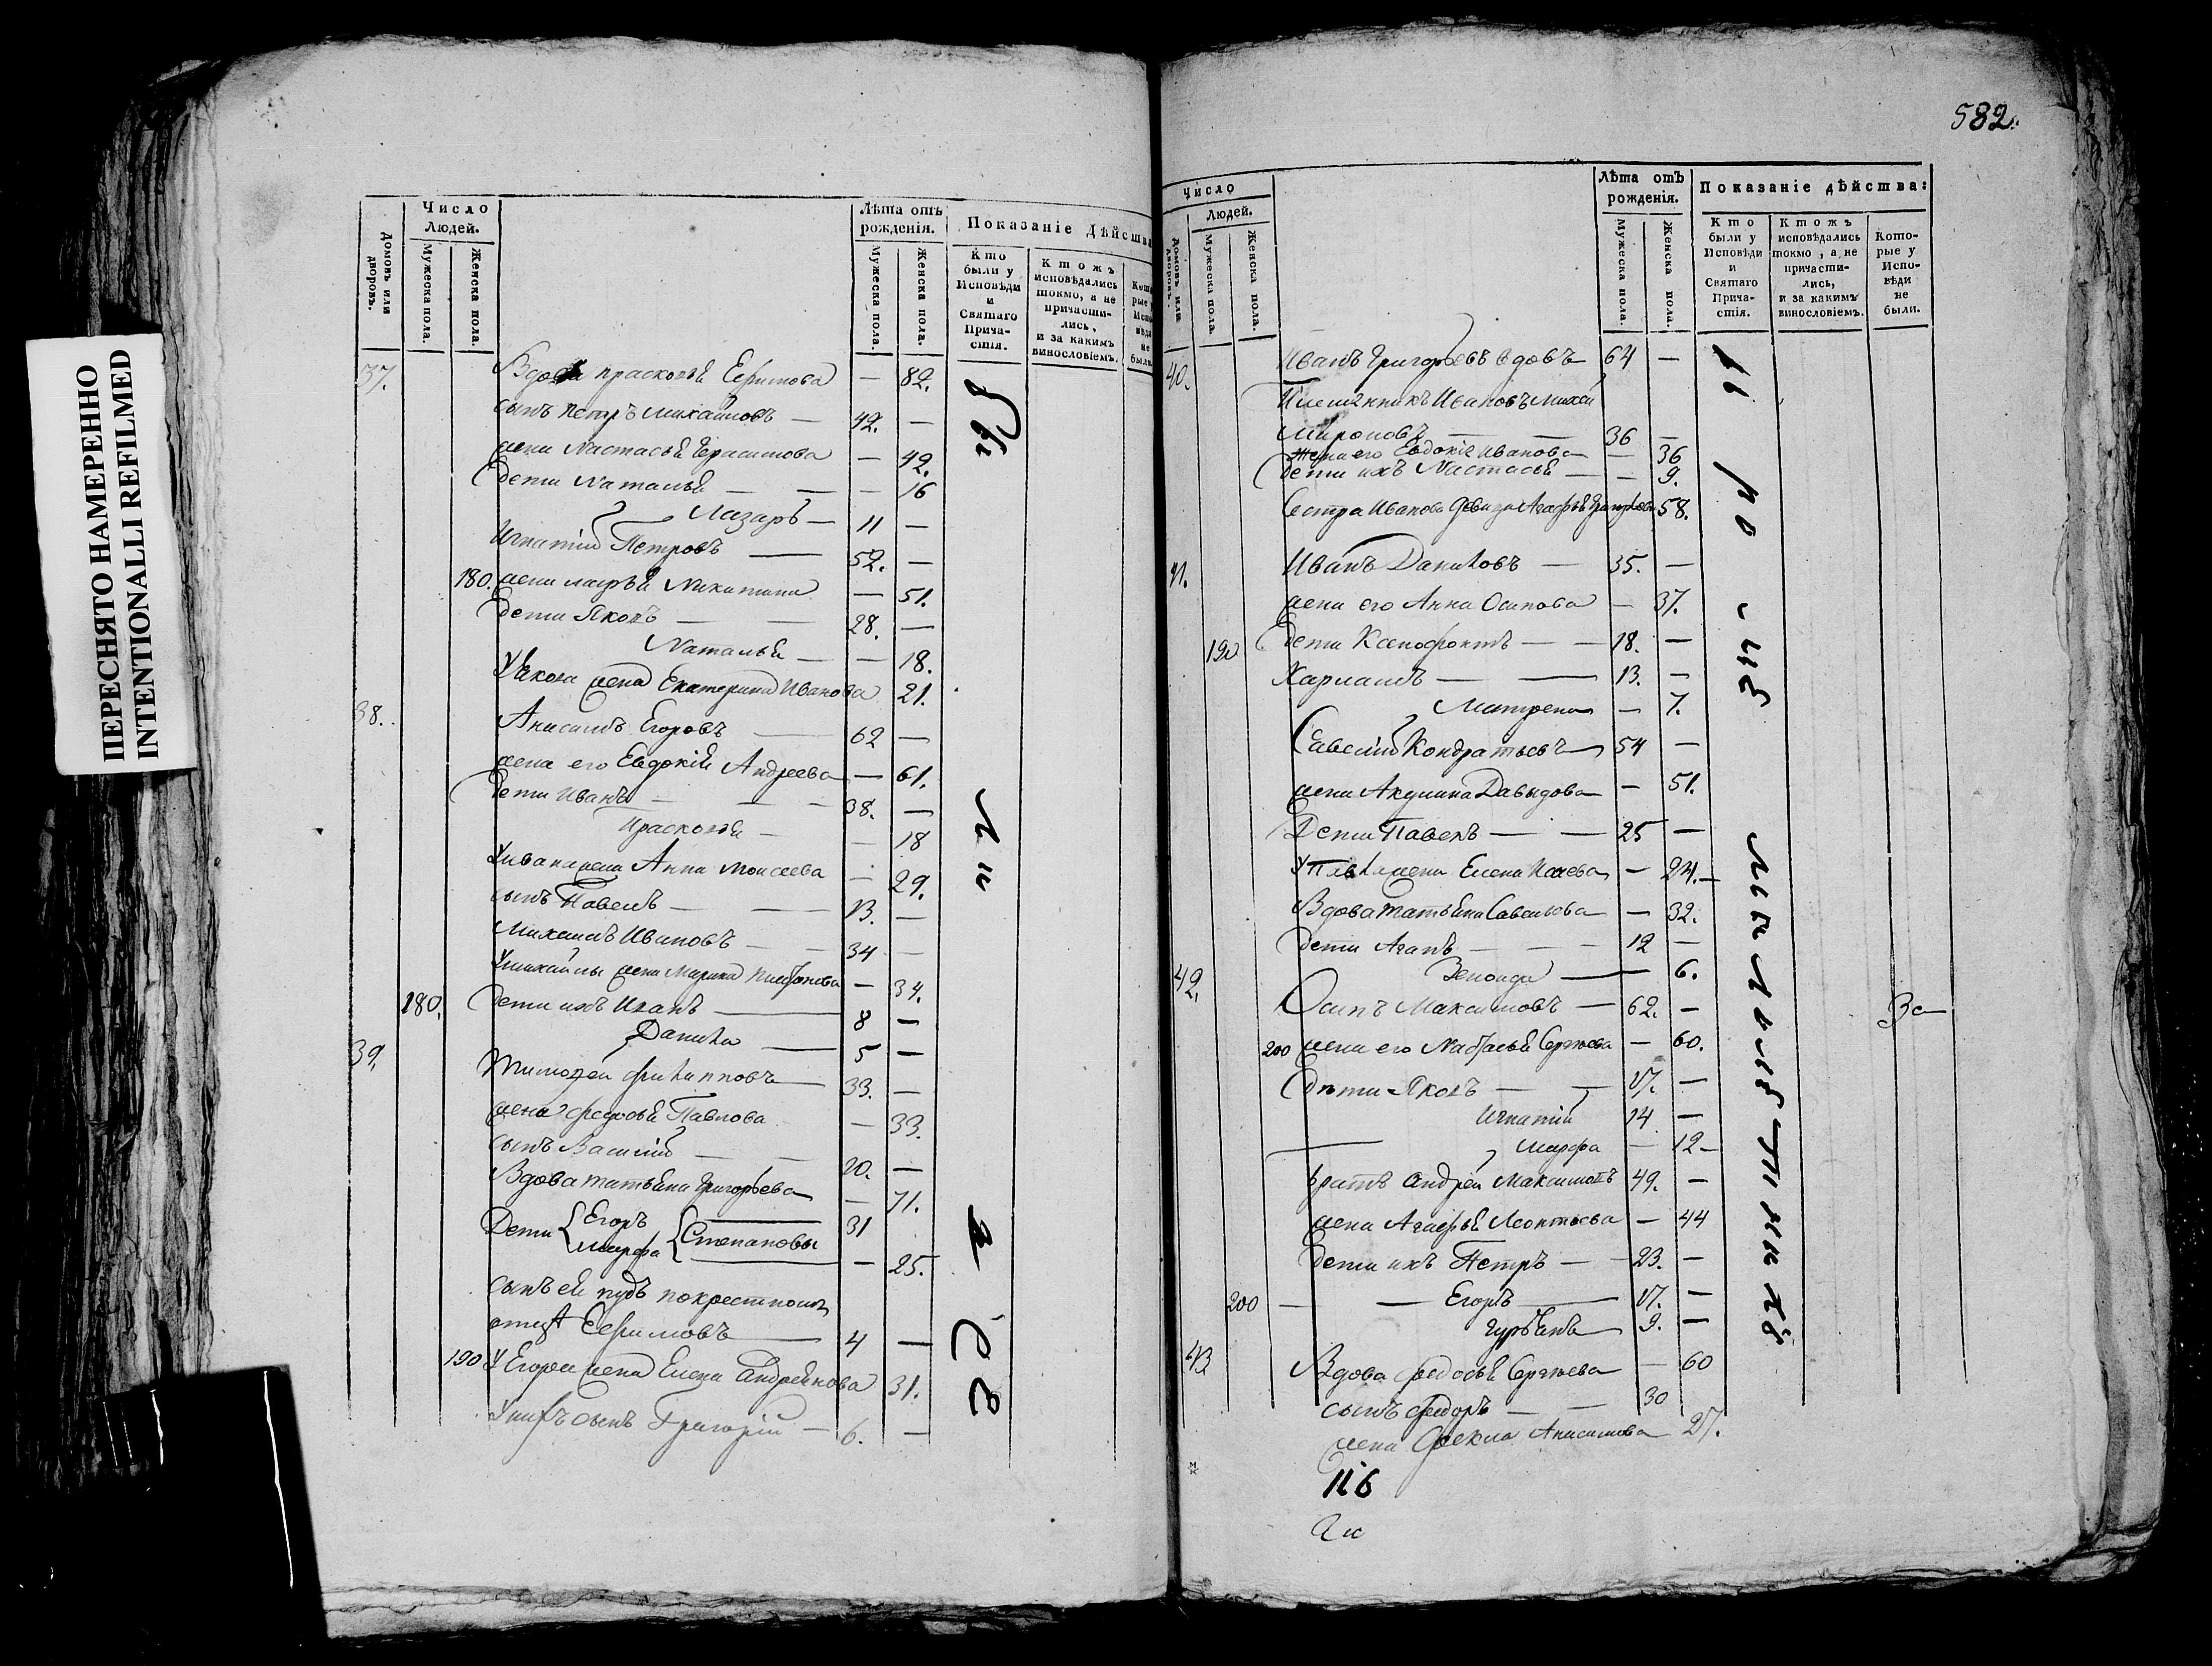 ПЕРЕСНЯТО НАМЕРЕННО
INTENTIONALLI REFILMED
Домовъ или дворовъ.
Число Людей.
Мужеска пола.
Женска пола.
Лѣта отъ рожденія.
Мужеска пола.
Женска пола.
Показаніе Дѣйства
Кто были у Исповѣди и Святаго Прича-стія.
Ктожъ исповѣдались токмо, а не причасти-лись, и за какимъ винословіемъ.
37. Вдова прасковья Ефимова — 82.
сынъ петръ михайловъ — 42. —
жена Настасья Герасимова — 42.
дети Наталья — — — 16
Лазаръ — 11 —
Игнатій Петровъ — 52. —
180. жена марья Никитина — 51.
дети Яковъ — — 28. —
Наталья — — 18.
У Якова жена Екатерина Иванова 21.
38. Анисимъ Егоровъ — 62 —
жена его Евдокія Андреева — 61.
дети Иванъ — — — 38. —
Прасковья — — 18
У ивана жена Анна Моисеева — 29.
сынъ Павелъ — — 13. —
Михаилъ Ивановъ — — 34 —
У михайлы жена Марина — 34.
180. дети ихъ Иванъ — 8 —
Данила — 5 —
39. Тимофей филипповъ — 33. —
жена федосья Павлова — 33.
сынъ Василій — — 20. —
Вдова татьяна григорьева — 71.
Дети Егоръ Степановы 31
Марфа — 25.
сынъ ея покрестному
отцу Ефимовъ — 4 —
190 У Егора жена Елена Андреянова 31.
У нихъ сынъ Григорій — 6. —
582.
Домовъ или дворовъ.
Число Людей.
Мужеска пола.
Женска пола.
Лѣта отъ рожденія.
Мужеска пола.
Женска пола.
Показаніе дѣйства:
Кто были у Исповѣди и Святаго Прича-стія.
Ктожъ исповѣдались токмо, а не причасти-лись, и за какимъ винословіемъ.
Кото-рые у Испо-вѣди не были.
40. Иванъ Григорьевъ вдовъ 64 —
Племянникъ Ивановъ
Мироновъ — — 36 —
жена его Евдокія иванова — 36
дети ихъ Настасья — — 9.
Сестра Иванова девица Агафья Григорьева 58.
41. Иванъ Даниловъ — 35. —
жена его Анна Осипова — 37.
190 дети Ксенофонтъ — — 18. —
Харламъ — — 13. —
Матрена — 7.
Савелій Кондратьевъ 54 —
жена Акулина Давыдова — 51.
Дети Павелъ — — 25 —
У Павла жена Елена Исаева — 24. —
Вдова татьяна Савельева — 32.
дети Агапъ — — — 12 —
Зеноида — 6.
42. Осипъ Максимовъ — 62. —
200 жена его Настасья Сергѣева — 60.
дѣти Яковъ — — 17. —
Игнатій 14 —
Марфа — 12 —
братъ андрей Максимовъ 49. —
жена Агафья Леонтьева — 44
дети ихъ Петръ — — 23. —
200 — — Егоръ — 17. —
9. —
43 Вдова федосья Сергѣева — 60
сынъ федоръ — — 30
жена Фекла Анисимова 27.
116